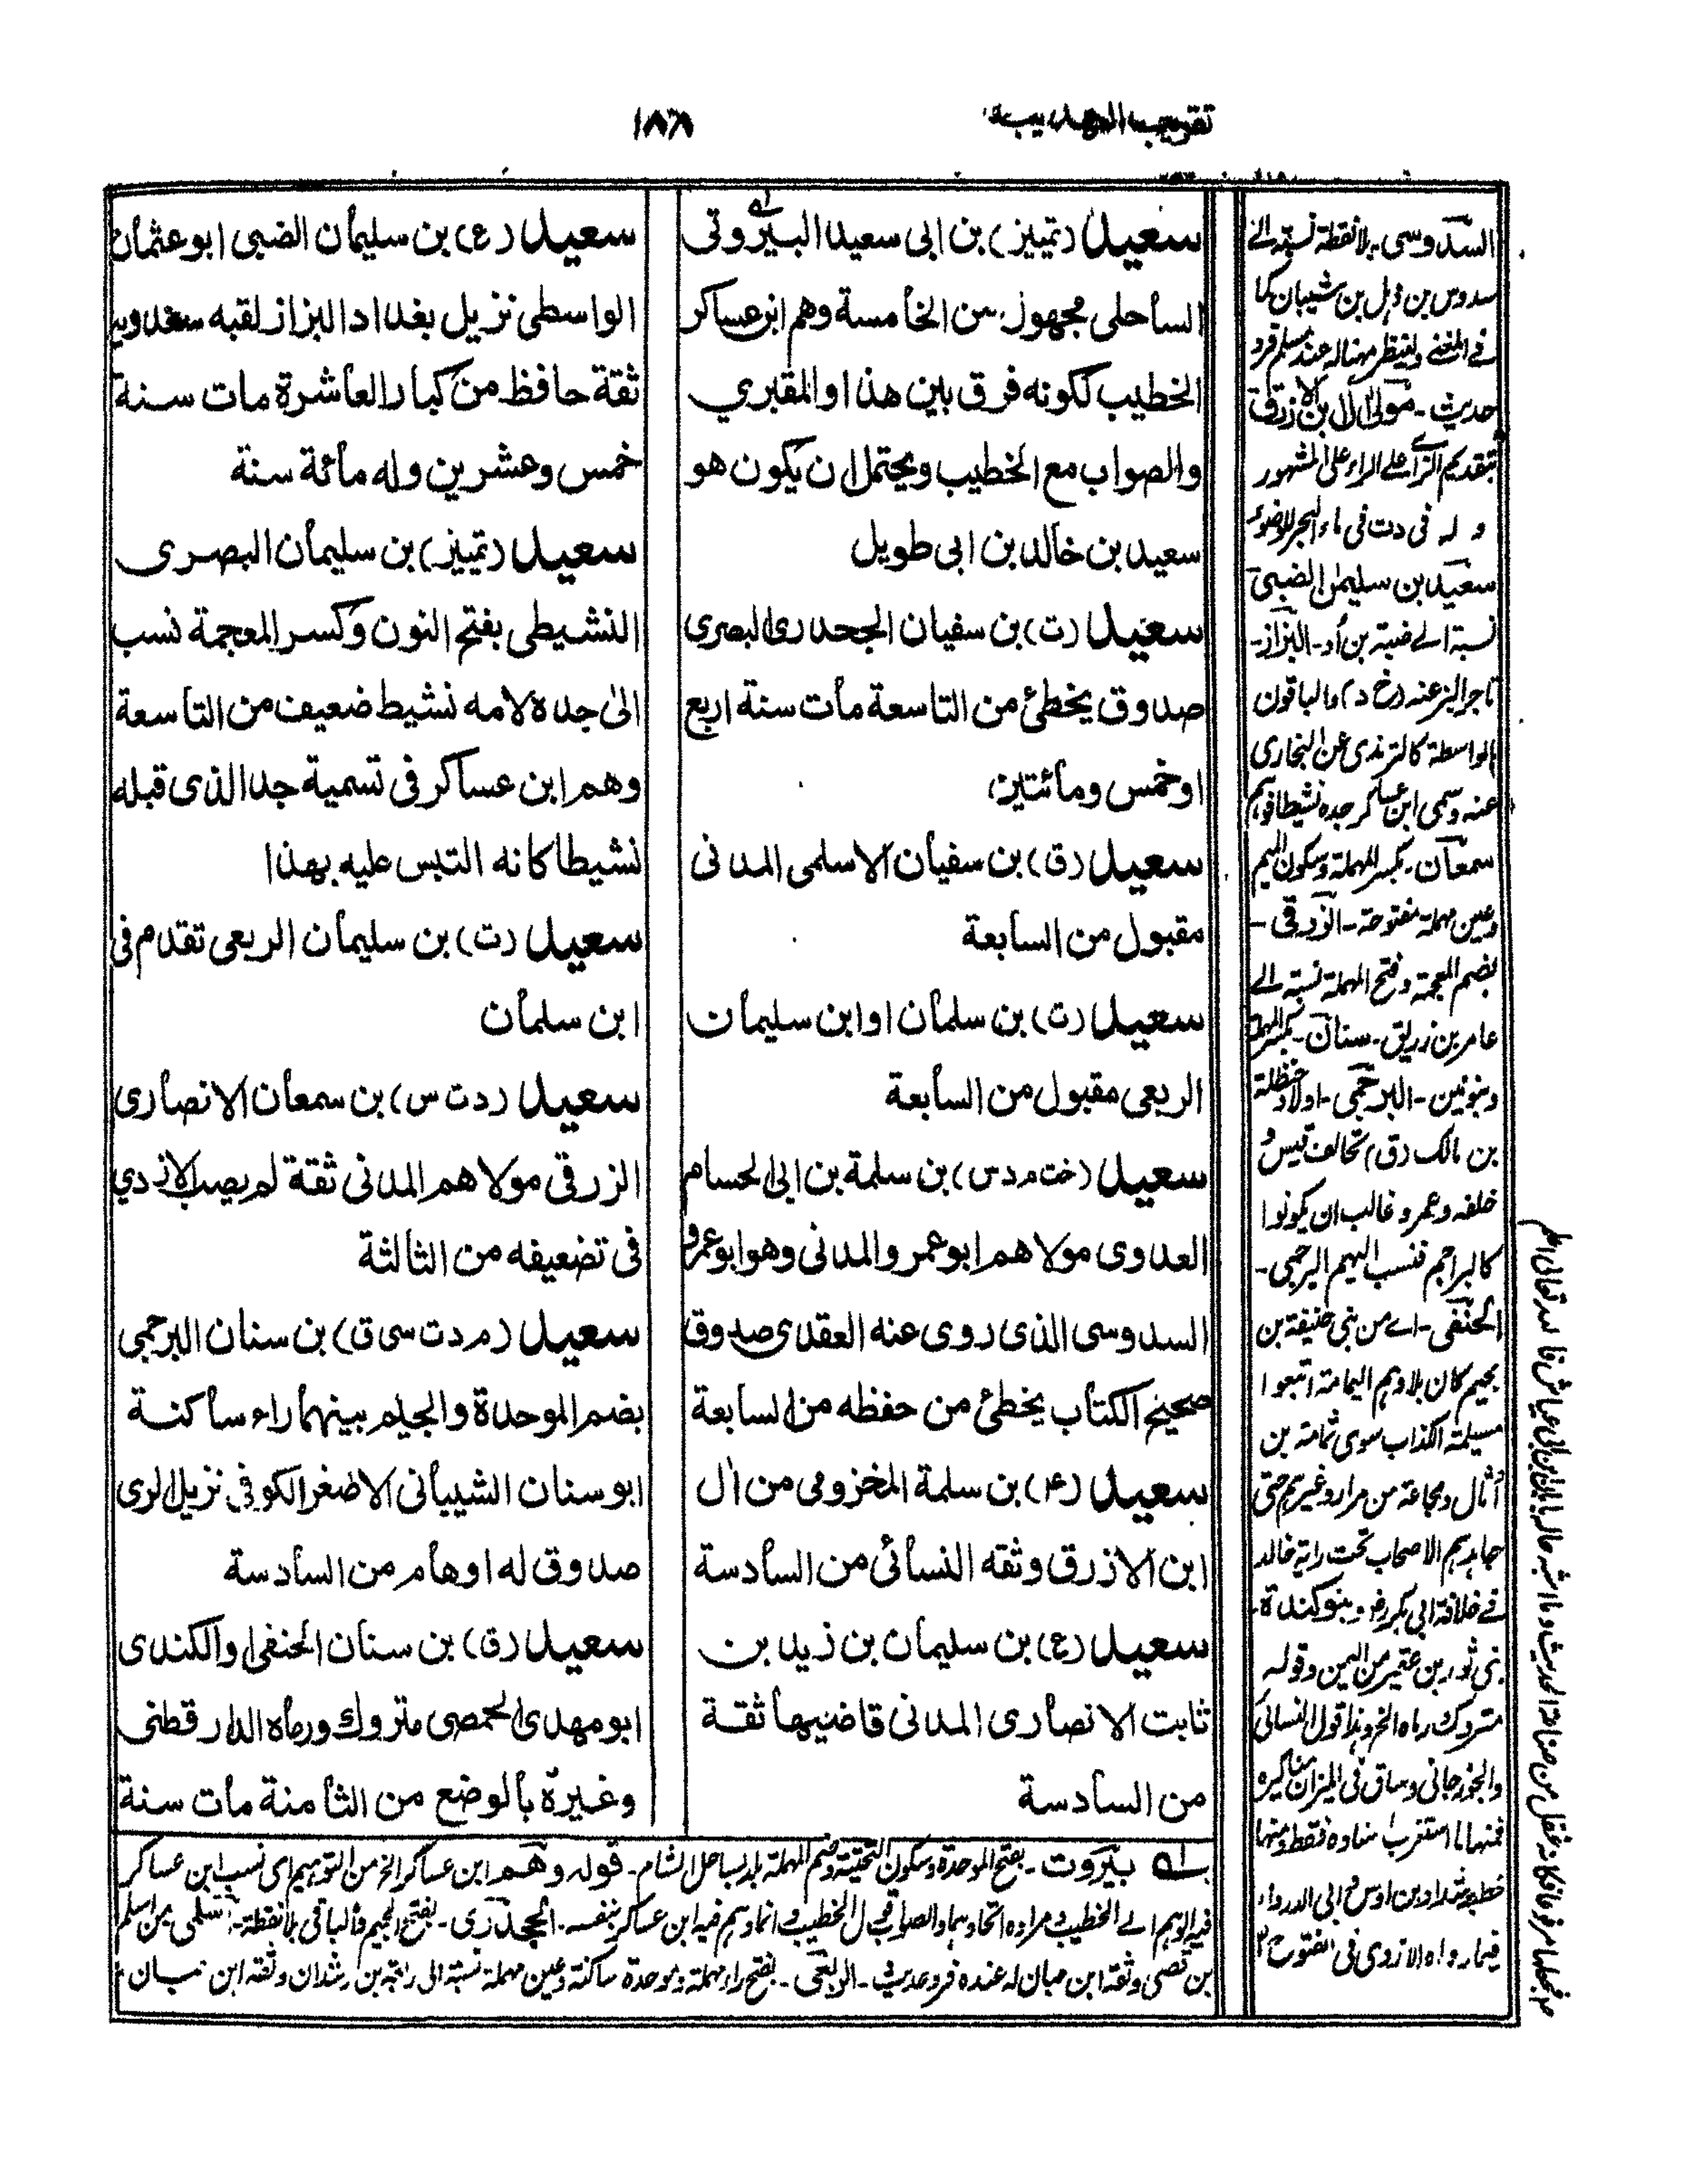 تقريب التهذيب
١٨٨
سعيد (تمييز) بن ابى سعيد البيروتى
الساحلى مجهول من الخامسة وهم ابن عساكر
الخطيب لكونه فرق بين هذا والمقبري
والصواب مع الخطيب ويحتمل ان يكون هو
سعيد بن خالد بن ابى طويل
سعيد (ت) بن سفيان الجحدرى البصرى
صدوق يخطئ من التاسعة مات سنة اربع
اوخمس ومائتين
سعيد (ق) بن سفيان الاسلمى المدنى
مقبول من السابعة
سعيد (ت) بن سلمان اوابن سليمان
الربعى مقبول من السابعة
سعيد (خت م د س) بن سلمة بن ابى الحسام
العدوى مولاهم ابوعمرو المدنى وهو ابوعمرو
السدوسى الذى روى عنه العقدى صدوق
صحيح الكتاب يخطئ من حفظه من السابعة
سعيد (٤) بن سلمة المخزومى من ال
ابن الازرق وثقه النسائى من السادسة
سعيد (ع) بن سليمان بن زيد بن
ثابت الانصارى المدنى قاضيها ثقة
من السادسة
سعيد (ع) بن سليمان الضبى ابوعثمان
الواسطى نزيل بغداد البزاز لقبه سعدويه
ثقة حافظ من كبار العاشرة مات سنة
خمس وعشرين وله مائة سنة
سعيد (تمييز) بن سليمان البصرى
النشيطى بفتح النون وكسر المعجمة نسب
الى جده لامه نشيط ضعيف من التاسعة
وهم ابن عساكر فى تسمية جد الذى قبله
نشيطا كانه التبس عليه بهذا
سعيد (ت) بن سليمان الربعى تقدم فى
ابن سلمان
سعيد (ردت س) بن سمعان الانصارى
الزرقى مولاهم المدنى ثقة لم يصب الازدي
فى تضعيفه من الثالثة
سعيد (م د ت سى ق) بن سنان البرجمى
بضم الموحدة والجيم بينهما راء ساكنة
ابوسنان الشيبانى الاصغر الكوفى نزيل الرى
صدوق له اوهام من السادسة
سعيد (ق) بن سنان الحنفى او الكندى
ابومهدى الحمصى متروك ورماه الدارقطنى
وغيره بالوضع من الثامنة مات سنة
السدوسى - بلانقطة نسبة الے
سدوس بن ذهل بن شيبان كما
فے المغنے ولينظر مهناله عند مسلم فرد
حديث - مولى ال بن الازرق
بتقديم الزاے على الراء على المشهور
و له فى دت فى ماء البحر للوضوء
سعيد بن سليمن الضبى
نسبة الے ضبة بن أد - البزاز -
تاجر البز عنه (خ د) والباقون
بواسطة كالترمذى عن البخارى
عنه وسمى ابن عساكر جده نشيطا فوهم
سمعان - بكسر المهملة وسكون الميم
وعين مهملة مفتوحة - الزرقى -
بضم المعجمة وفتح المهملة نسبة الے
عامر بن زريق - سنان - بكسر المهملة
وبنونين - البرجمى - اولاد حنظلة
بن مالك (ق) تحالف قيس و
خلفه وعمرو غالب ان يكونوا
كالبراجم فنسب اليهم البرجمى -
الحنفى - اے من بنى حنيفة بن
لجيم كان بلادهم اليمامة اتبعوا
مسيلمة الكذاب سوى ثمامة بن
أثال ومجاعة من مرار وغيرهم حتى
جاهدهم الاصحاب تحت راية خالد
فے خلافة ابى بكر رض وبنو كندة -
بنى ثور بن عفير من اليمن وقوله
متروك رماه الخ وبذا قول النسائى
والجوزجانى وساق فى الميزان مناكيره
فمنها ما استغرب اسناده فقط ومنها
خطبة شداد بن اوس و ابى الدرداء
فيما رواه الازدى فى الفتوح ١٢
اے بيروت - بفتح الموحدة وسكون التحتية وضم المهملة بلد بساحل الشام - قوله وهم ابن عساكر الخ من التوهيم اى نسب ابن عساكر
فيه الوهم الے الخطيب ومراده اتحادهما والصواب قول الخطيب وانما وهم فيه ابن عساكر بنفسه - الجحدرى - بفتح الجيم والباقى بلانقطة - اسلمى من اسلم
بن قصى وثقه ابن حبان له عنده فرد حديث - الربعى - بفتح راء مهملة وموحدة ساكنة وعين مهملة نسبة الى ربعة بن رشدان وثقه ابن حبان